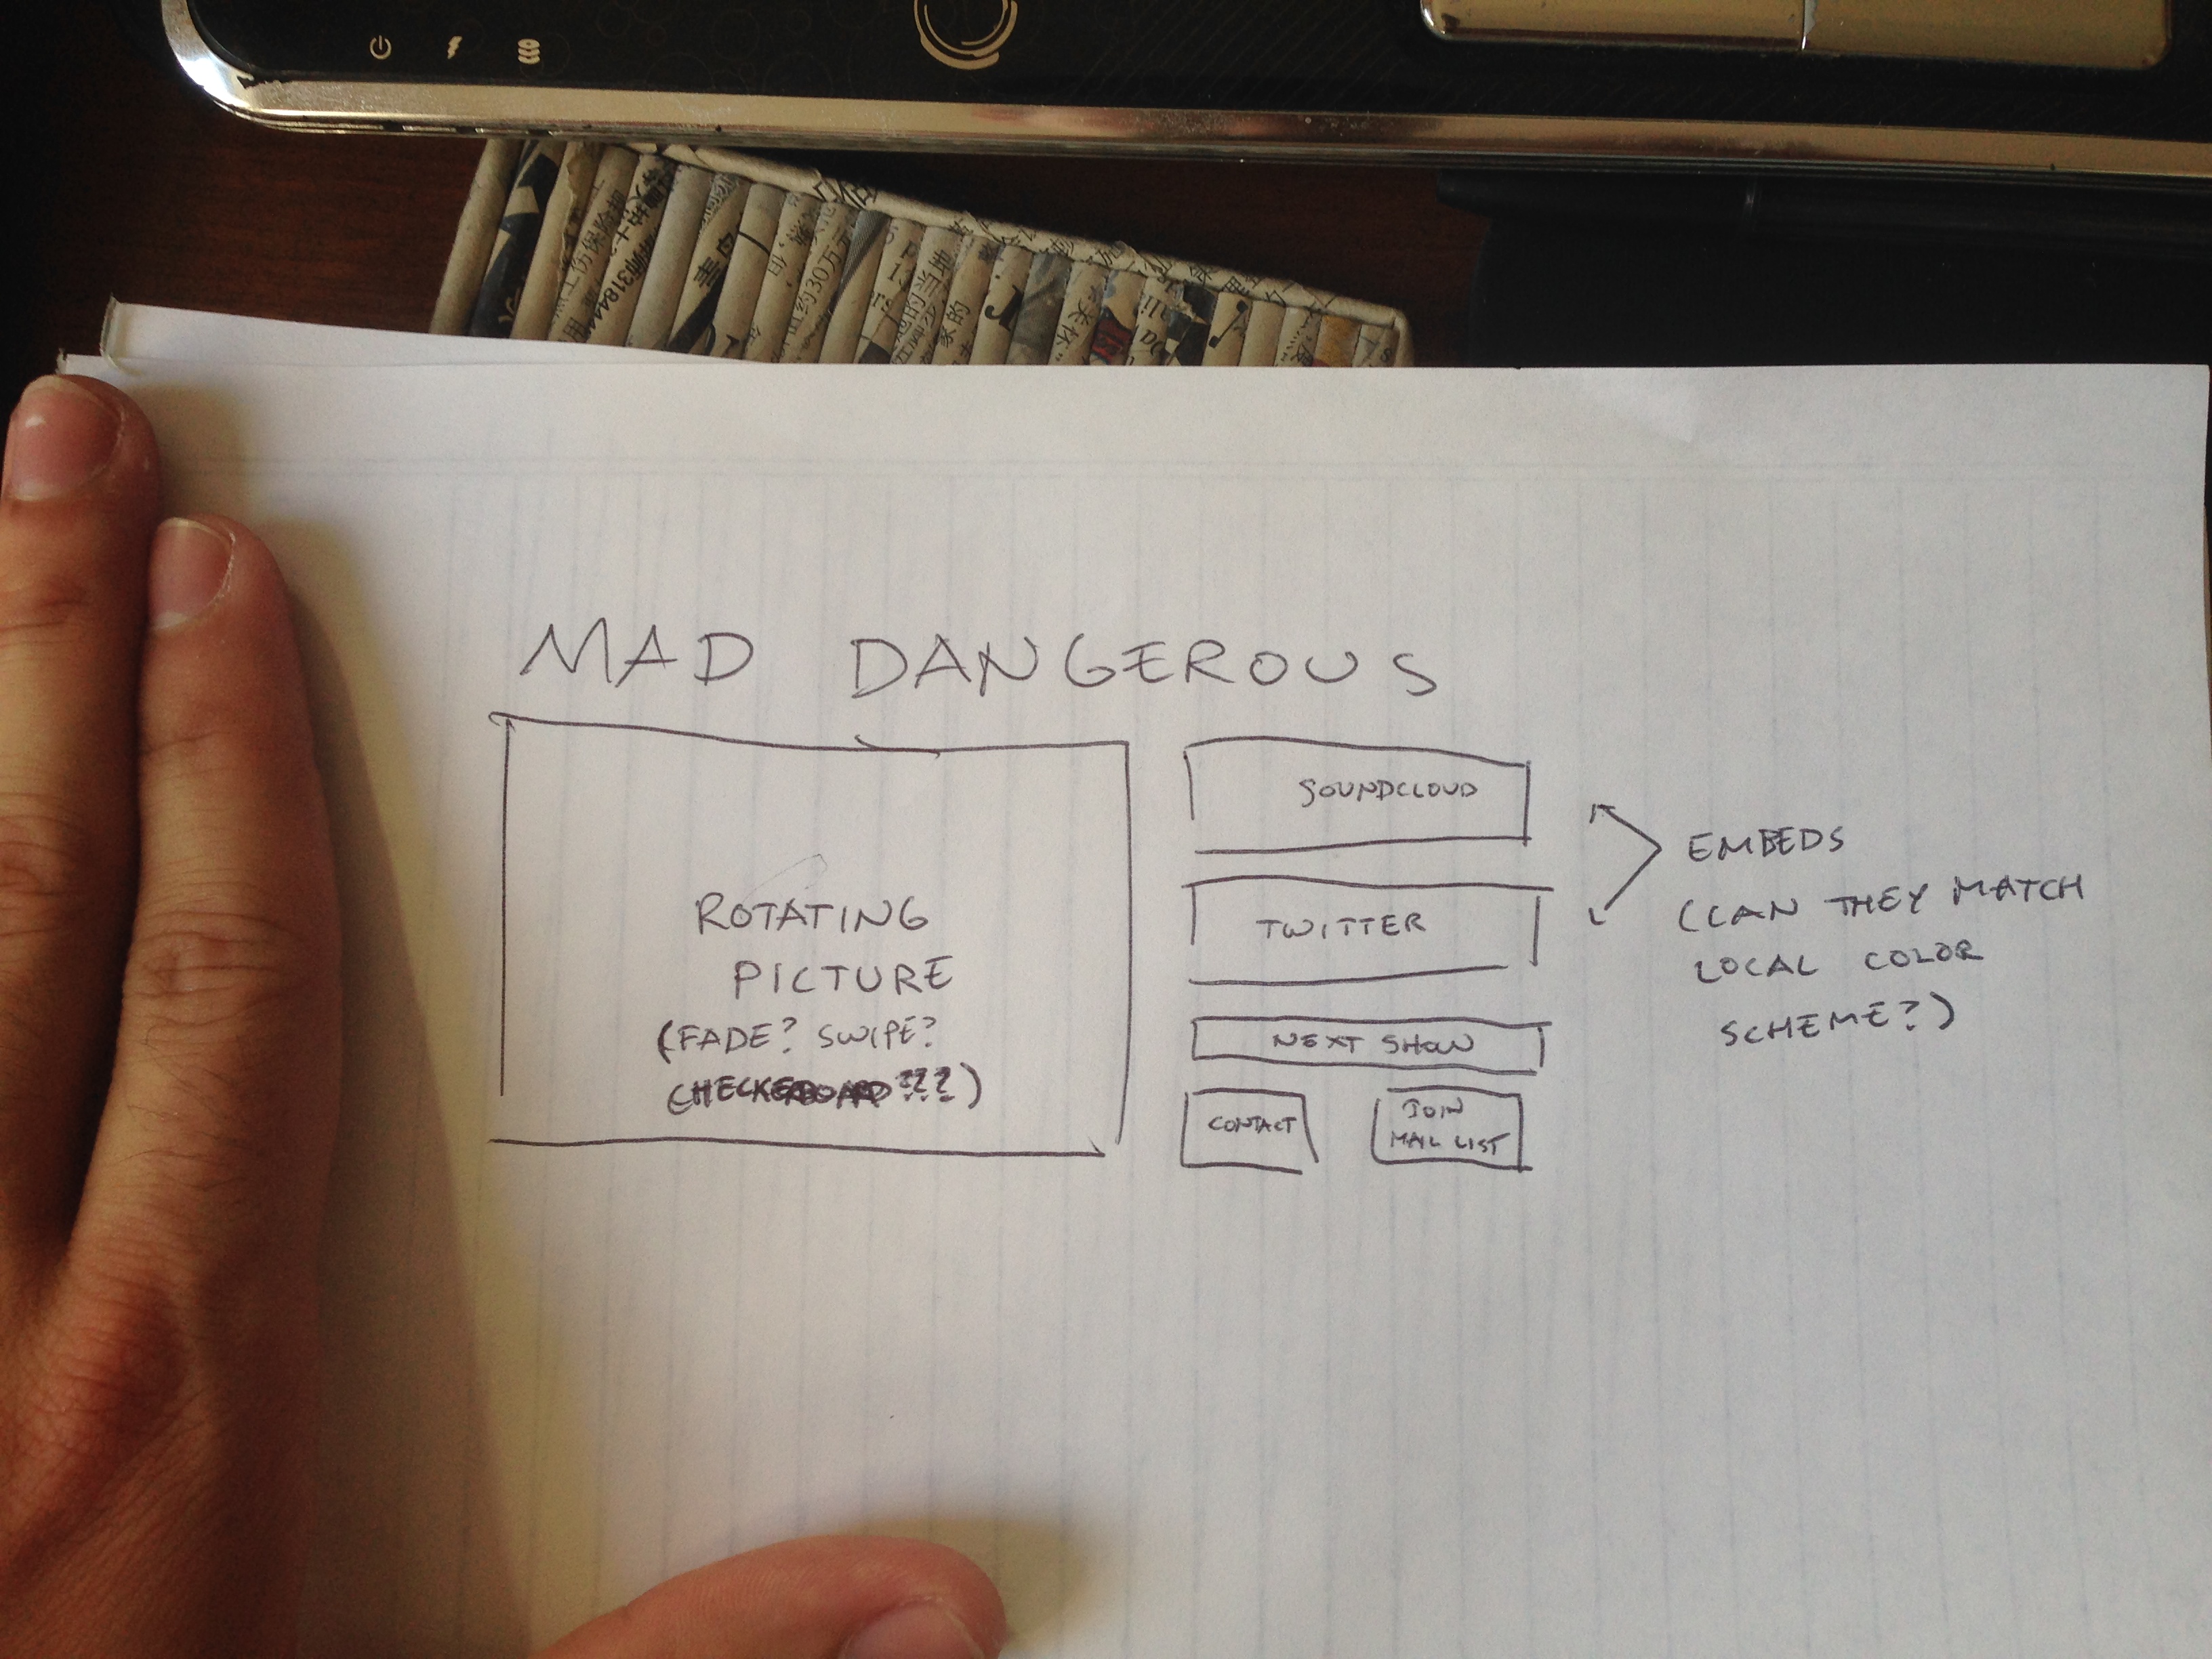 MAD DANGEROUS
ROTATING
PICTURE
(FADE? SWIPE?
CHECKERBOARD???)
SOUNDCLOUD
TWITTER
NEXT SHOW
CONTACT
JOIN
MAIL LIST
EMBEDS
(CAN THEY MATCH
LOCAL COLOR
SCHEME?)